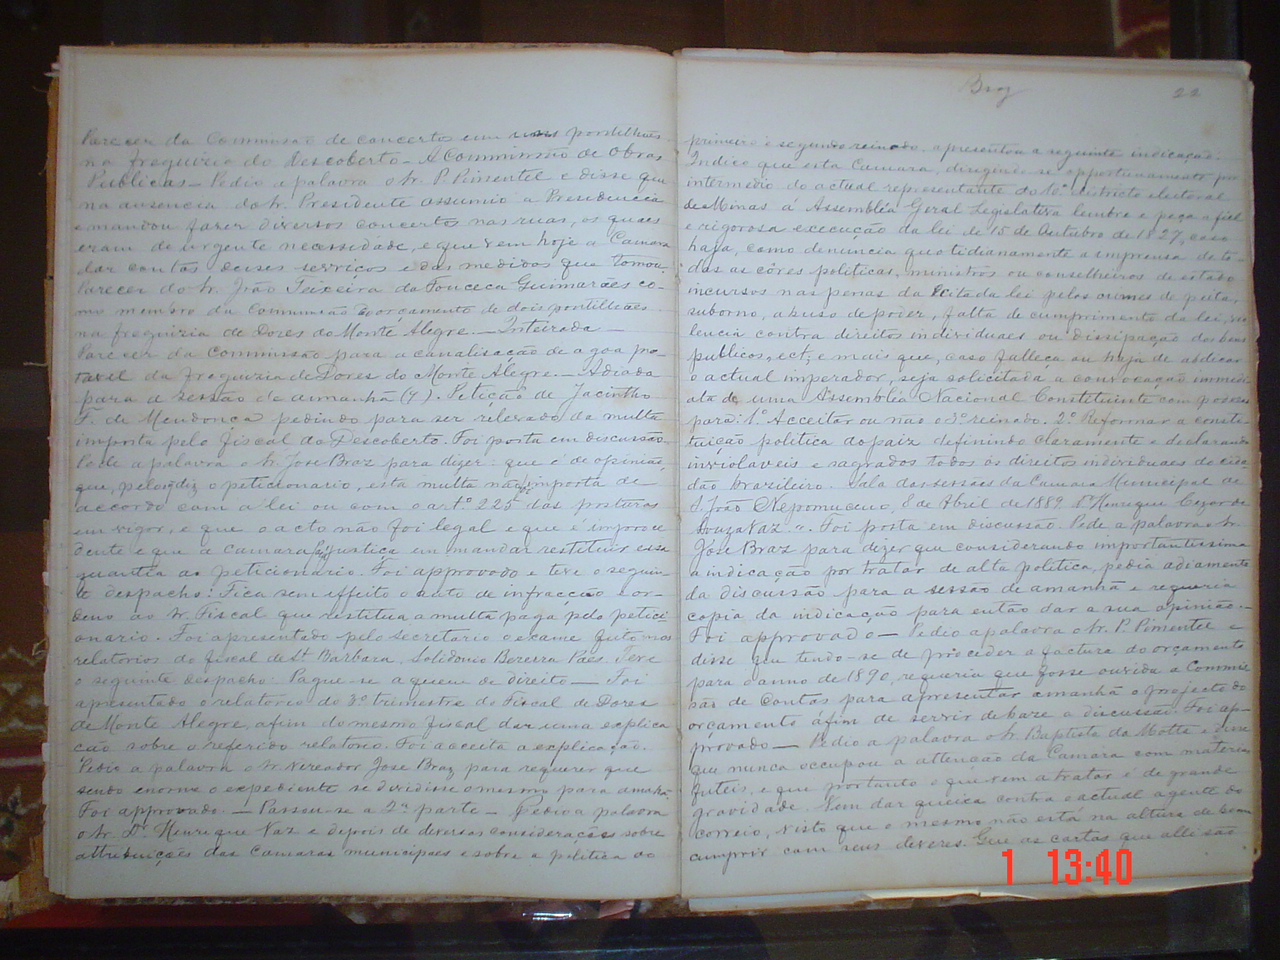 Parecer da Commissão de concertos em uns pontilhões
na freguizia do Descoberto – A Commissão de Obras
Publicas – Pedio a palavra o Sr. P. Pimentel e disse que
na ausencia do Sr. Presidente assumio a Presidencia
e mandou fazer diversos concertos nas ruas, os quaes
eram de urgente necessidade, e que vem hoje a Camara
dar contas desses serviços e das medidas que tomou.
Parecer do Sr. João Teixeira da Fonceca Guimarães co-
mo membro da Commissão do orçamento de dois pontilhões
na freguizia de Dores do Monte Alegre. – Inteirada –
Parecer da Commissão para a canalisação de agoa po-
tavel da freguizia de Dores do Monte Alegre. – Adiada
para a sessão de amanhã (9). Petição de Jacintho
F. de Mendonça pedindo para ser relevado da multa
imposta pelo fiscal do Descoberto. Foi posta em discussão
Pede a palavra o Sr. José Braz para dizer: que é de opinião,
que, pelo q diz o peticionario, esta multa não foi imposta de
accordo com a lei ou com o artº 225 das posturas
em vigor, e que o acto não foi legal e que é improce
dente e que a camara faz justiça em mandar restituir essa
quantia ao peticionario. Foi approvado e teve o seguin
te despacho: Fica sem effeito o auto de infracção e or-
deno ao Sr. Fiscal que restitua a multa paga pelo petici
onario. Foi apresentado pelo secretario o exame feito nos
relatorios do fiscal de Stª Barbara, Solidonio Bezerra Paes. Teve
o seguinte despacho: Pague-se a quem de direito – Foi
apresentado o relatorio do 3º trimestre do Fiscal de Dores
de Monte Alegre, afim do mesmo fiscal dar uma explica
ção sobre o referido relatorio. Foi acceita a explicação.
Pedio a palavra o Sr. Vereador José Braz para requerer que
sendo enorme o expediente se dividisse o mesmo para amanhã
Foi approvado. – Passou-se a 2ª parte – Pedio a palavra
o Sr. Dr. Henrique Vaz e depois de diversas considerações sobre
attribuições das Camaras municipaes e sobre a politica do
Braz 22
primeiro e segundo reinado, apresentou a seguinte indicação:
Indico que esta Camara, dirigindo-se opportunamente por
intermedio do actual representante do 10º districto eleitoral
de Minas á Assembléa Geral Legislativa lembre e peça a fiel
e rigorosa execução da lei de 15 de Outubro de 1827, caso
haja, como denuncia quotidianamente a imprensa de to-
das as côres politicas, ministros ou conselheiros de estado
incursos nas penas da citada lei pelos crimes de peita,
suborno, abuso de poder, falta de cumprimento da lei, vio
lencia contra direitos individuaes ou dissipação dos bens
publicos, ect, e mais que, caso falleça ou haja de abdicar
o actual imperador, seja solicitada a convocação immedi
ata de uma Assembléa Nacional Constituinte com poderes
para: 1º Acceitar ou não o 3º reinado. 2º Reformar a consti-
tuição politica do paiz definindo claramente e declarando
inviolaveis e sagrados todos os direitos individuaes do cida
dão brazileiro. Sala das sessões da Camara Municipal de
S. João Nepomuceno, 8 de Abril de 1889. Dr. Henrique Cezar de
Souza Vaz". Foi posta em discussão. Pede a palavra o Sr.
José Braz para dizer que considerando importantissima
a indicação por tratar de alta politica, pedia adiamento
da discussão para a sessão de amanhã e requeria
copia da indicação para então dar a sua opinião. –
Foi approvado – Pedio a palavra o Sr. P. Pimentel e
disse que tendo-se de proceder a factura do orçamento
para o anno de 1890, requeria que fosse ouvida a Commis
são de Contas para apresentar amanhã o projecto do
orçamento afim de servir de baze a discussão. Foi ap-
provado – Pedio a palavra o Sr. Baptista da Motta e disse
que nunca occupou a attenção da Camara com materias
futeis, e que portanto o que vem a tratar é de grande
gravidade. Vem dar queixa contra o actual agente do
correio, visto que o mesmo não está na altura de bem
cumprir com seus deveres. Que as cartas que alli são
1 13:40